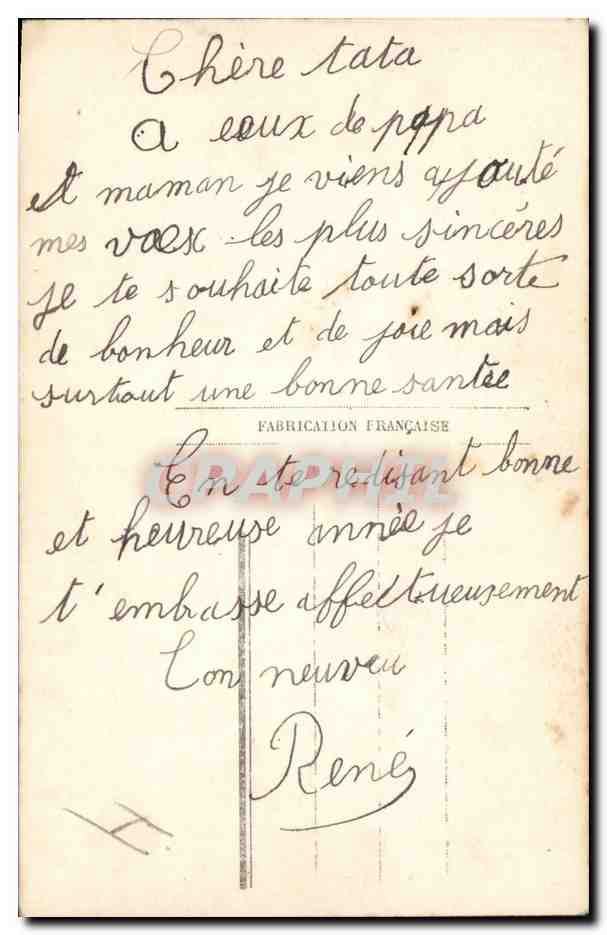 Chère tata
a ceux de papa
et maman je viens ajouté
mes vœx les plus sincéres
je te souhaite toute sorte
de bonheur et de joie mais
surtout une bonne santée
FABRICATION FRANÇAISE
CPAPHIL
En te redisant bonne
et heureuse année je
t'embrasse affectueusement
Ton neuveu
René